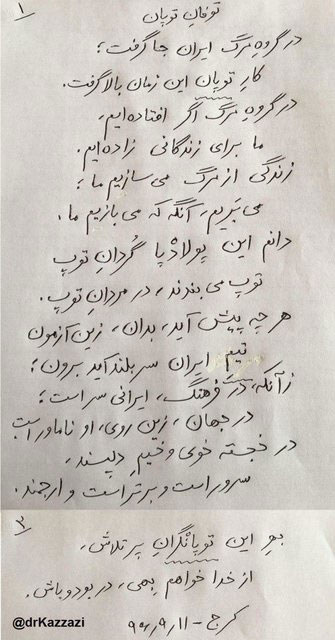 ۱
توفانِ توپان
در گروهِ مرگ ایران جا گرفت؛
کارِ توپان این زمان بالا گرفت.
در گروهِ مرگ اگر افتاده‌ایم،
ما برای زندگانی زاده‌ایم.
زندگی از مرگ می‌سازیم ما؛
می‌بَریم، آنگه که می‌بازیم ما.
دانم این پولادْپا گُردانِ توپ
توپ می‌بندند، در مردانِ توپ.
هر چه پیش آید، بدان، زین آزمون
تیمِ ایران سربلند آید برون؛
زآنکه، در فرهنگ، ایرانی سر است؛
در جهان، زین روی، او نام‌آور است
در خجسته خوی و خیمِ دلپسند،
سرور است و برتر است و ارجمند.
۳
بهرِ این توپانگرانِ پر تلاش،
از خدا خواهم بهی، در بود و باش.
کرج - ۹۶٫۹٫۱۱
@drKazzazi